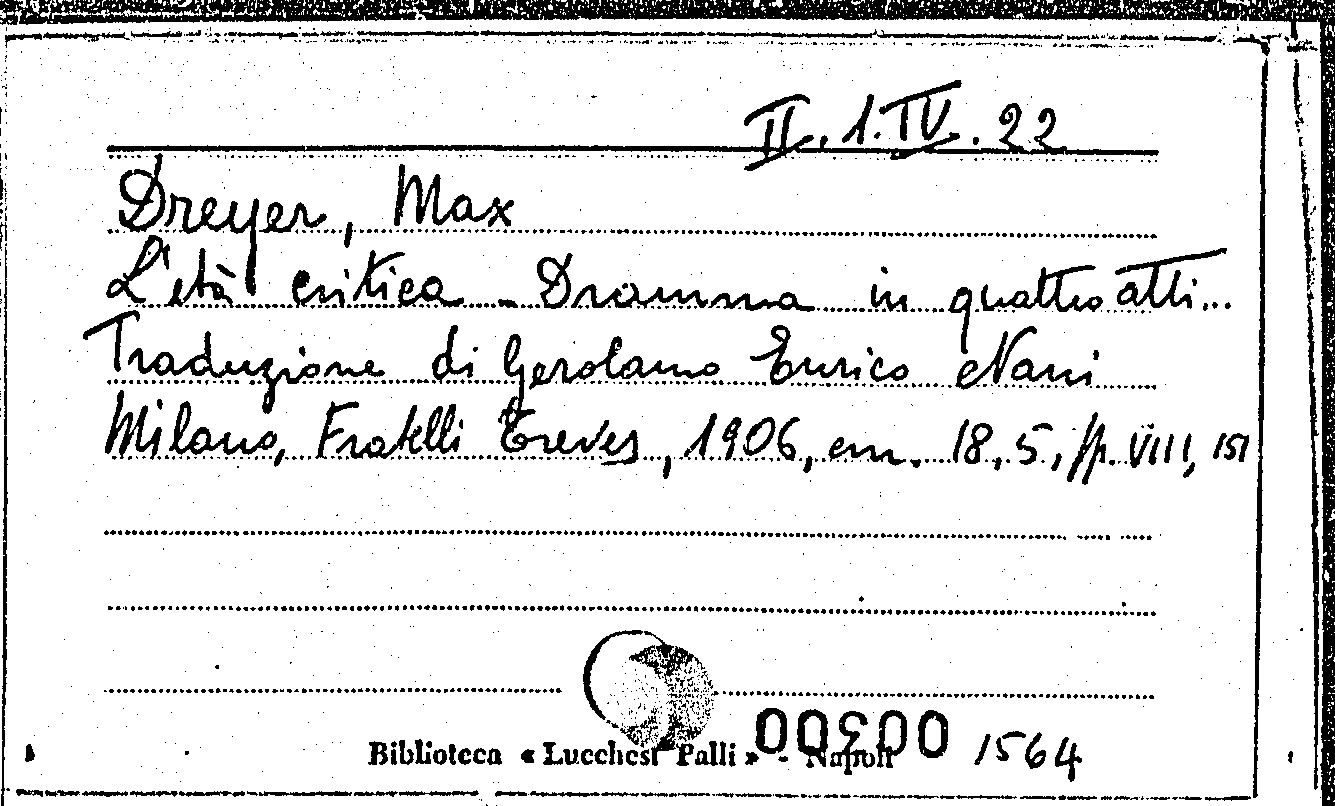 II.1.IV.22
Dreyer, Max
L'età critica - Dramma in quattro atti...
Traduzione di Gerolamo Enrico Nani
Milano, Fratelli Treves, 1906, cm. 18,5, pp. VIII, 151
Biblioteca « Lucchesi Palli » - Napoli 1564